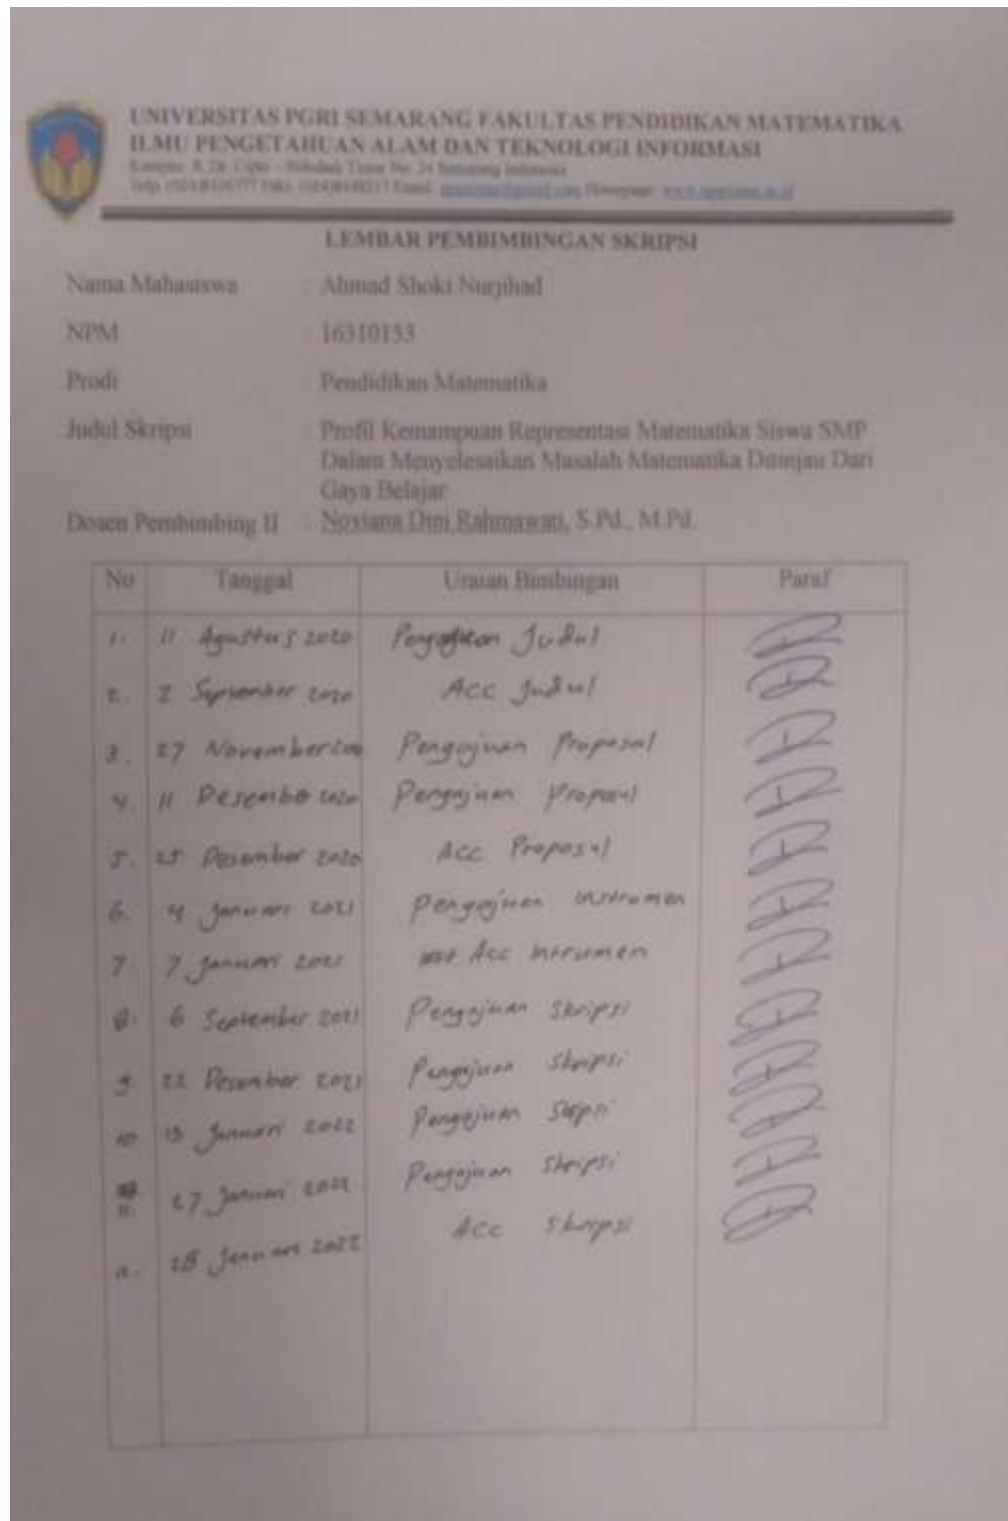 UNIVERSITAS PGRI SEMARANG FAKULTAS PENDIDIKAN MATEMATIKA
ILMU PENGETAHUAN ALAM DAN TEKNOLOGI INFORMASI
Kampus: Jl. Dr. Cipto – No. 24 Semarang Indonesia
LEMBAR PEMBIMBINGAN SKRIPSI
Nama Mahasiswa : Ahmad Shoki Nurjihad
NPM : 16310153
Prodi : Pendidikan Matematika
Judul Skripsi : Profil Kemampuan Representasi Matematika Siswa SMP
Dalam Menyelesaikan Masalah Matematika Ditinjau Dari
Gaya Belajar
Dosen Pembimbing II : Noviana Dini Rahmawati, S.Pd., M.Pd.
No Tanggal Uraian Bimbingan Paraf
1. 11 Agustus 2020 Pengajuan Judul
2. 2 September 2020 Acc Judul
3. 27 November Pengajuan Proposal
4. 11 Desember 2020 Pengajuan Proposal
5. 25 Desember 2020 Acc Proposal
6. 4 Januari 2021 Pengajuan instrumen
7. 7 Januari 2021 Acc intrumen
8. 6 September 2021 Pengajuan Skripsi
9. 22 Desember 2021 Pengajuan Skripsi
10 13 Januari 2022 Pengajuan Skripsi
11. 27 Januari 2022 Pengajuan Skripsi
12. 28 Januari 2022 Acc Skripsi